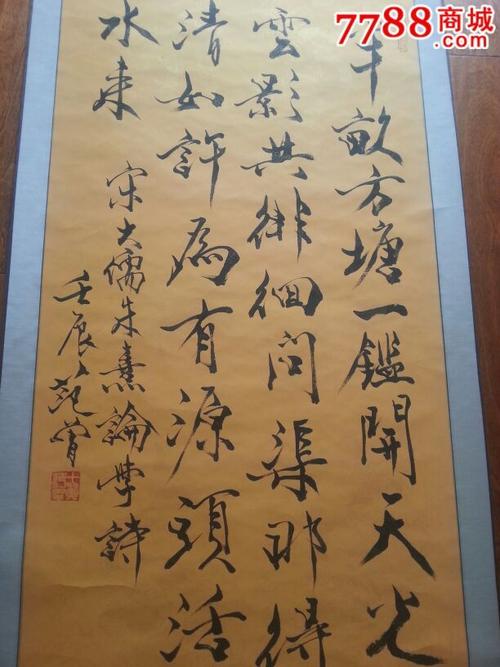 7788商城
7788.com
半畝方塘一鑑開天光
雲影共徘徊問渠那得
清如許為有源頭活
水来
宋大儒朱熹論學詩
壬辰范曾